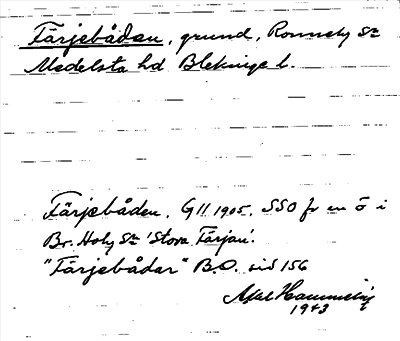 Färjebådan, grund, Ronneby Sn
Medelsta hd Blekinge l.
Färjebåden. G II 1905. SSO fr en ö i
Br. Hoby Sn 'Stora Färjan'.
"Färjebådar" B.O. sid 156
Axel Hammelig
1943